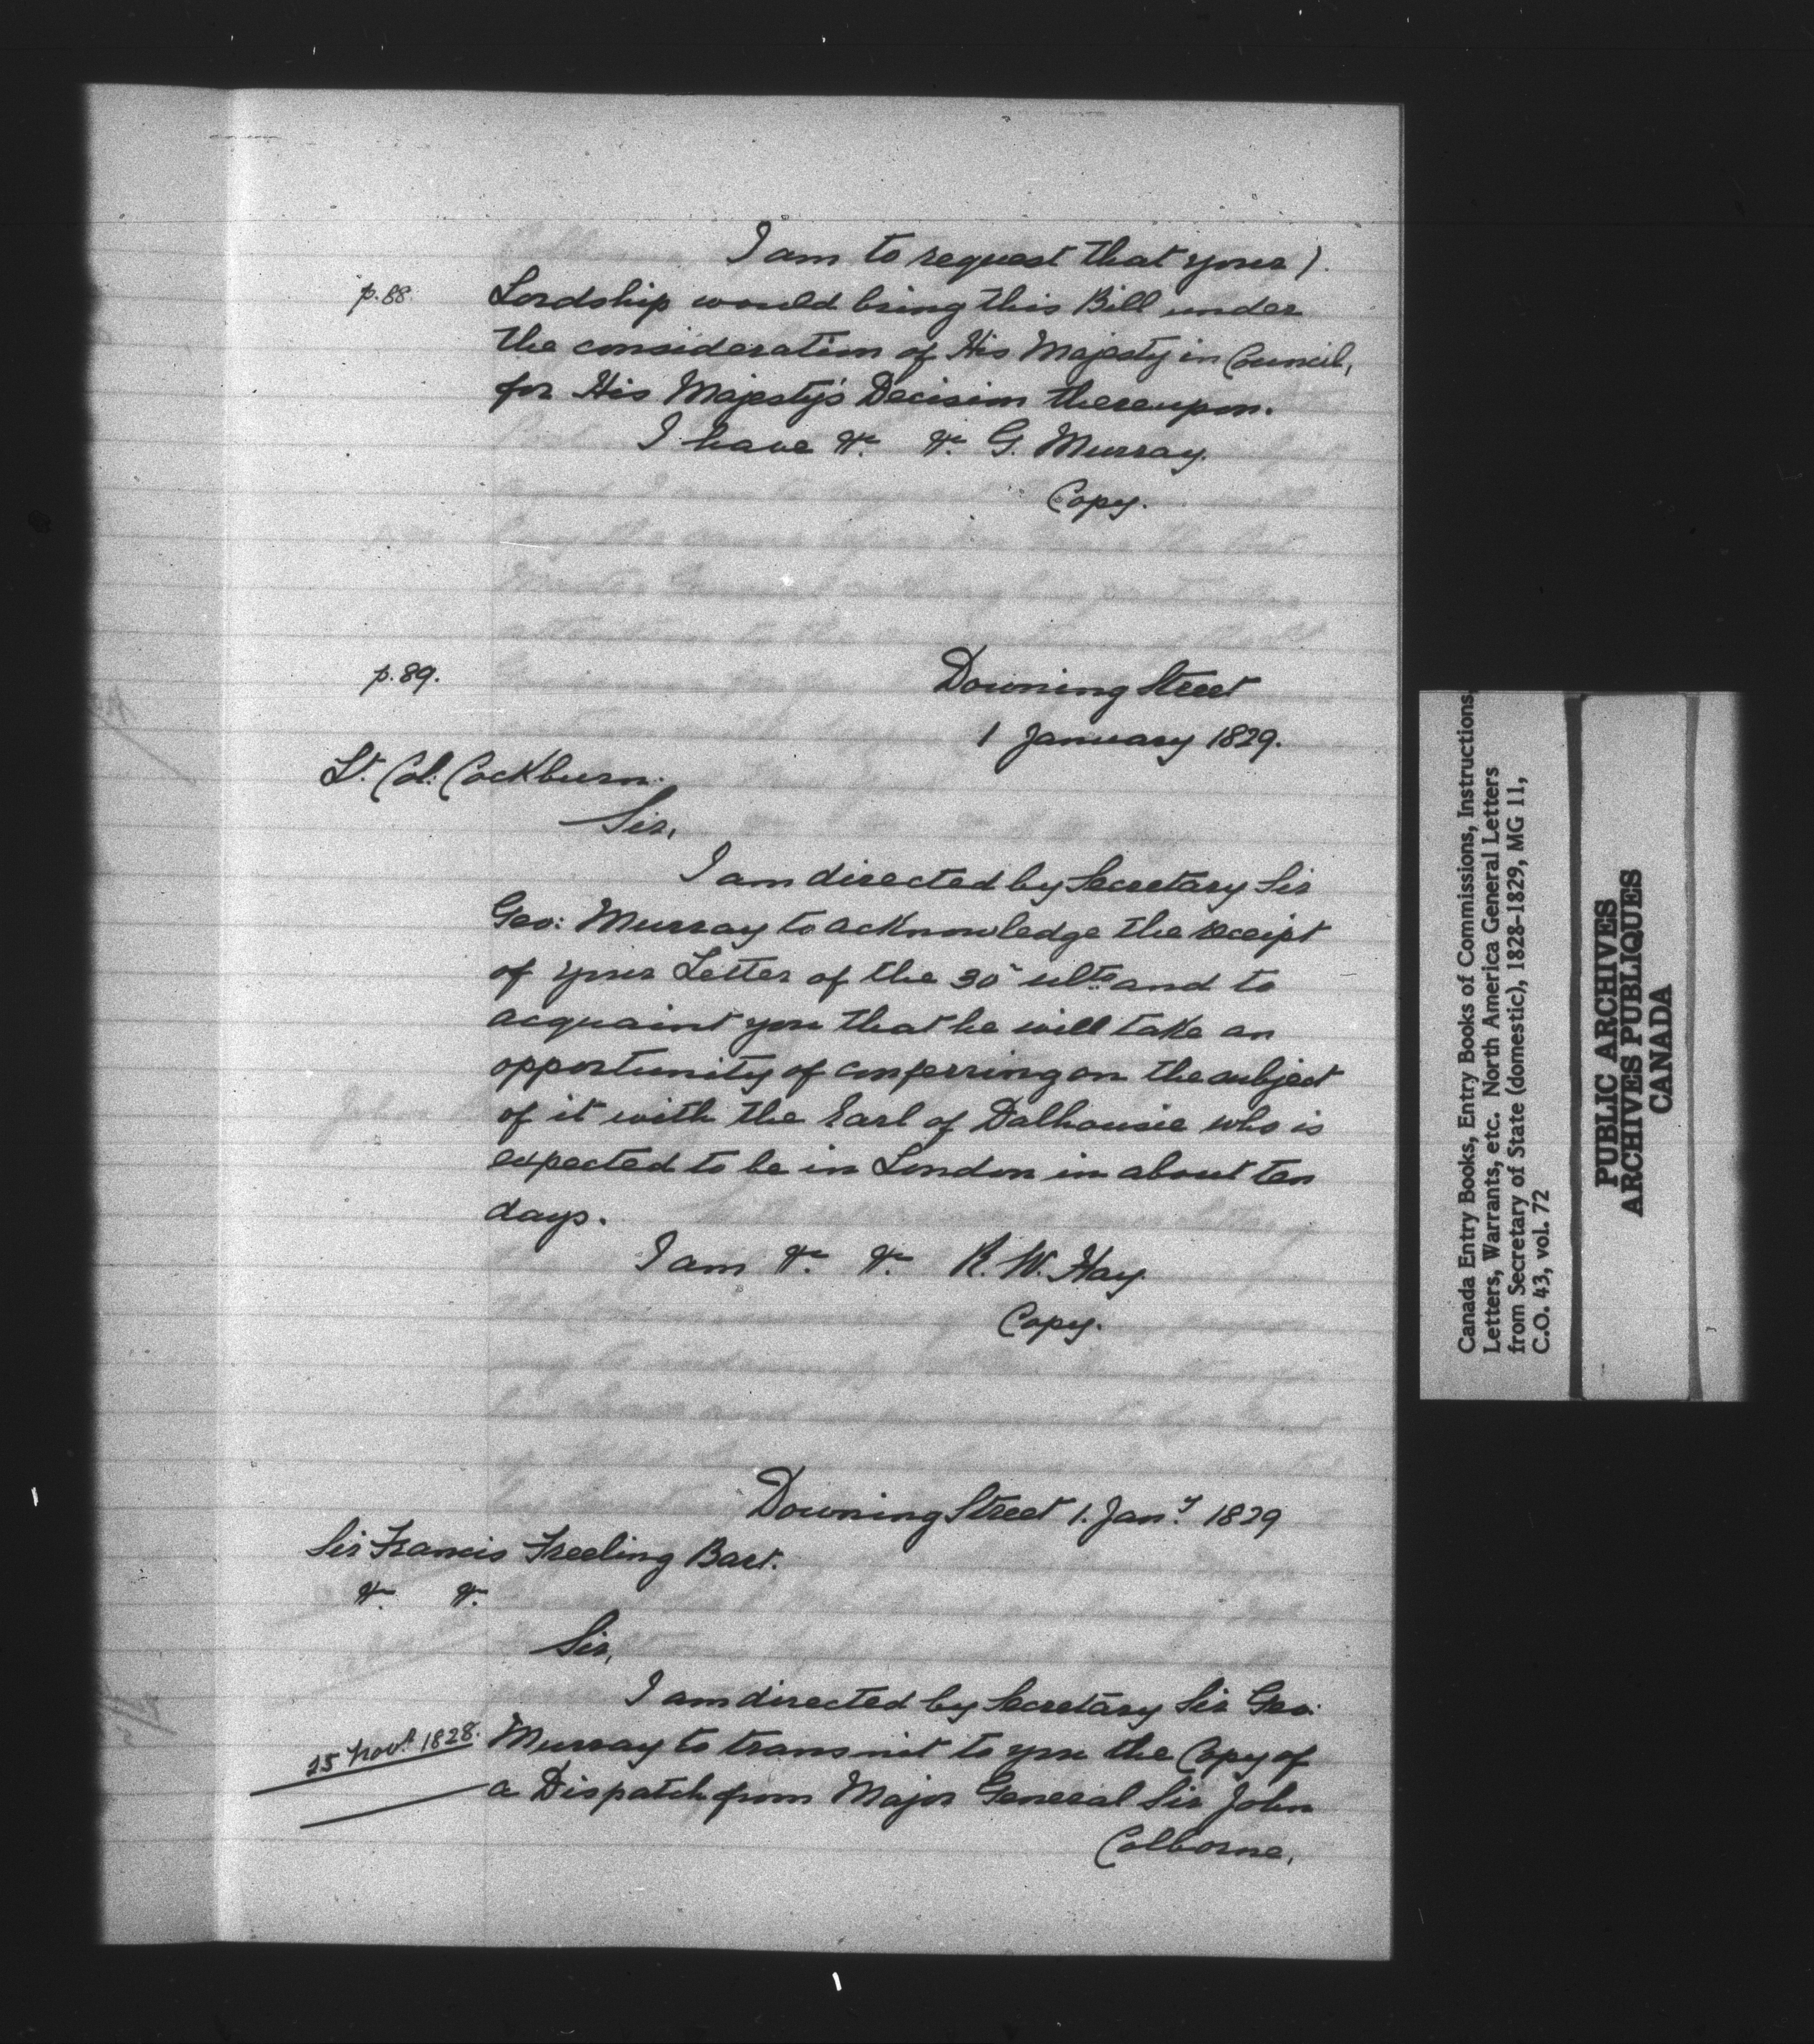 I am to request that your).
p.88. Lordship would bring this Bill under
the consideration of His Majesty in Council,
for His Majesty's Decision thereupon.
I have &c. &c. G. Murray.
Copy.
p.89. Downing Street
1 January 1829.
Lt. Col. Cockburn.
Sir,
I am directed by Secretary Sir
Geo: Murray to acknowledge the receipt
of your Letter of the 30th ulto. and to
acquaint you that he will take an
opportunity of conferring on the subject
of it with the Earl of Dalhousie who is
expected to be in London in about ten
days.
I am &c. &c. R. W. Hay.
Copy.
Downing Street 1. Jany. 1829
Sir Francis Freeling Bart.
&c. &c.
Sir,
I am directed by Secretary Sir Geo:
25 Novr. 1828. Murray to transmit to you the Copy of
a Dispatch from Major General Sir John
Colborne,
Canada Entry Books, Entry Books of Commissions, Instructions,
Letters, Warrants, etc. North America General Letters
from Secretary of State (domestic), 1828-1829, MG 11,
C.O. 43, vol. 72
PUBLIC ARCHIVES
ARCHIVES PUBLIQUES
CANADA